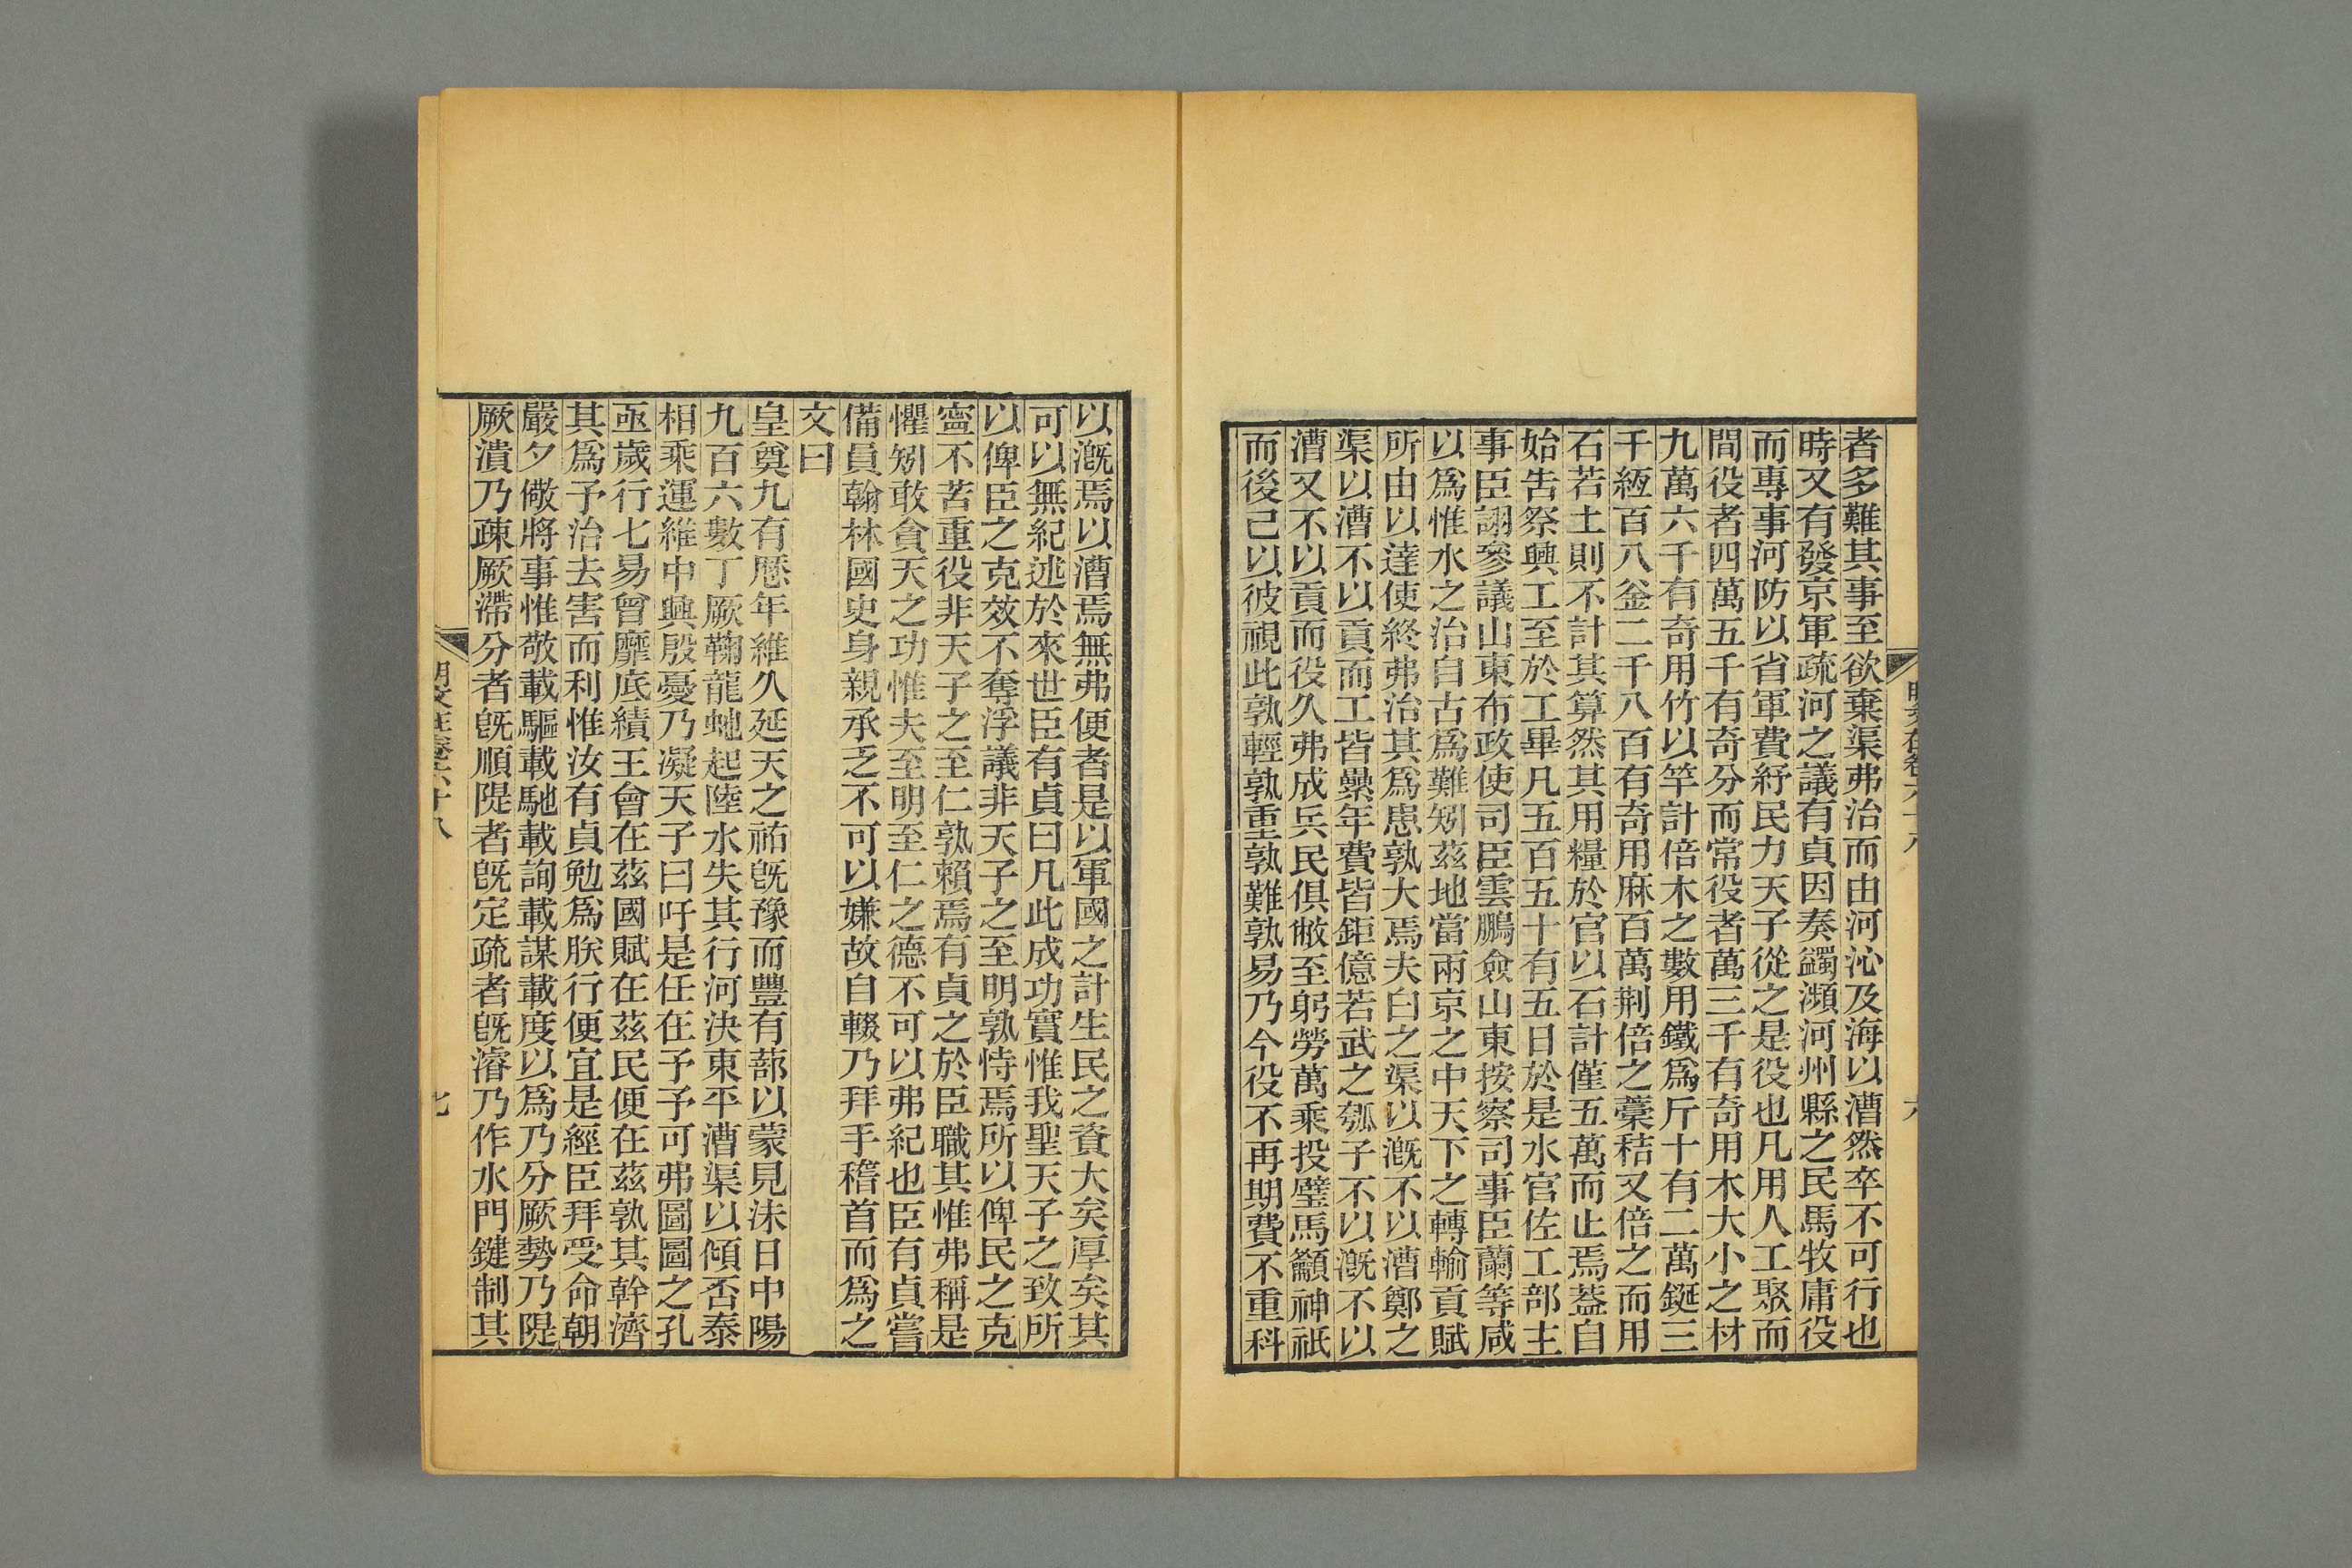 者多難其事至欲棄渠弗治而由河沁及海以漕然卒不可行也
時又有發京軍疏河之議有貞因奏蠲瀕河州縣之民馬牧庸役
而專事河防以省軍費紓民力天子從之是役也凡用人工聚而
間役者四萬五千有奇分而常役者萬三千有奇用木大小之材
九萬六千有奇用竹以竿計倍木之數用鐵爲斤十有二萬鋌三
千絙百八釜二千八百有奇用麻百萬荆倍之藁秸又倍之而用
石若土則不計其算然其用糧於官以石計僅五萬而止焉蓋自
始告祭興工至於工畢凡五百五十有五日於是水官佐工部主
事臣詡參議山東布政使司臣雲鵬僉山東按察司事臣蘭等咸
以爲惟水之治自古爲難矧茲地當兩京之中天下之轉輸貢賦
所由以達使終弗治其爲患孰大焉夫白之渠以漑不以漕鄭之
渠以漕不以貢而工皆纍年費皆鉅億若武之瓠子不以漑不以
漕又不以貢而役久弗成兵民俱敝至躬勞萬乘投璧馬籲神祇
而後已以彼視此孰輕孰重孰難孰易乃今役不再期費不重科
以漑焉以漕焉無弗便者是以軍國之計生民之資大矣厚矣其
可以無紀述於來世臣有貞曰凡此成功實惟我聖天子之致所
以俾臣之克效不奪浮議非天子之至明孰恃焉所以俾民之克
寧不苦重役非天子之至仁孰賴焉有貞之於臣職其惟弗稱是
懼矧敢貪天之功惟夫至明至仁之德不可以弗紀也臣有貞嘗
備員翰林國史身親承乏不可以嫌故自輟乃拜手稽首而爲之
文曰
皇奠九有厯年維久延天之祐旣豫而豐有蔀以蒙見沬日中陽
九百六數丁厥鞠龍虵起陸水失其行河決東平漕渠以傾否泰
相乘運維中興殷憂乃凝天子曰吁是任在予予可弗圖圖之孔
亟歲行七易曾靡底績王會在茲國賦在茲民便在茲孰其幹濟
其爲予治去害而利惟汝有貞勉爲朕行便宜是經臣拜受命朝
嚴夕儆將事惟敬載驅載馳載詢載謀載度以爲乃分厥勢乃隄
厥潰乃疎厥滯分者旣順隄者旣定疏者旣濬乃作水門鍵制其
明文在卷六十八
七